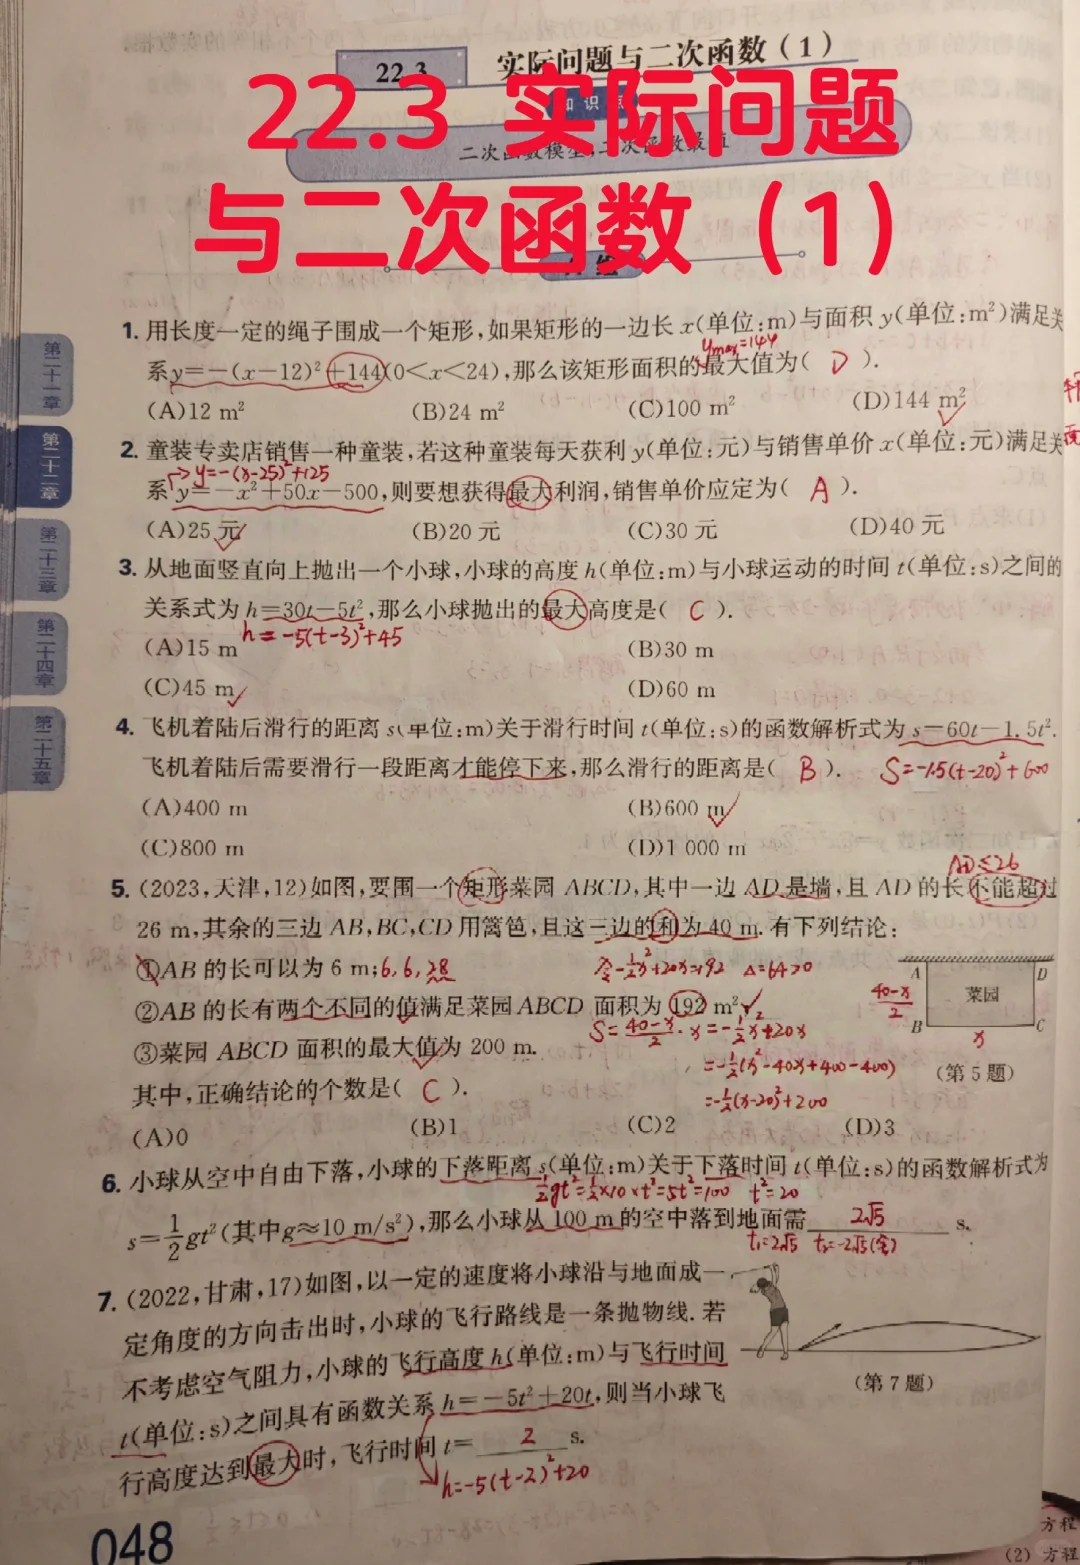 22.3 实际问题与二次函数（1）
22.3 实际问题
与二次函数（1）
1. 用长度一定的绳子围成一个矩形,如果矩形的一边长 x(单位:m)与面积 y(单位:m²)满足关
ymax=144
系 y=-(x-12)²+144(0<x<24),那么该矩形面积的最大值为( D ).
(A)12 m² (B)24 m² (C)100 m² (D)144 m²
2. 童装专卖店销售一种童装,若这种童装每天获利 y(单位:元)与销售单价 x(单位:元)满足关
y=-(x-25)²+125
系 y=-x²+50x-500,则要想获得最大利润,销售单价应定为( A ).
(A)25 元 (B)20 元 (C)30 元 (D)40 元
3. 从地面竖直向上抛出一个小球,小球的高度 h(单位:m)与小球运动的时间 t(单位:s)之间的
关系式为 h=30t-5t²,那么小球抛出的最大高度是( C ).
h=-5(t-3)²+45
(A)15 m (B)30 m
(C)45 m (D)60 m
4. 飞机着陆后滑行的距离 s(单位:m)关于滑行时间 t(单位:s)的函数解析式为 s=60t-1.5t².
飞机着陆后需要滑行一段距离才能停下来,那么滑行的距离是( B ). S=-1.5(t-20)²+600
(A)400 m (B)600 m
(C)800 m (D)1 000 m
AD≤26
5. (2023,天津,12)如图,要围一个矩形菜园 ABCD,其中一边 AD 是墙,且 AD 的长不能超过
26 m,其余的三边 AB,BC,CD 用篱笆,且这三边的和为 40 m. 有下列结论:
①AB 的长可以为 6 m; 6, 6, 28 令-½x²+20x=192 Δ=64>0
A D
40-x/2 菜园
②AB 的长有两个不同的值满足菜园 ABCD 面积为 192 m²;
B C
x
S=40-x/2·x=-½x²+20x
③菜园 ABCD 面积的最大值为 200 m.
=-½(x²-40x+400-400)
(第 5 题)
其中,正确结论的个数是( C ).
=-½(x-20)²+200
(A)0 (B)1 (C)2 (D)3
6. 小球从空中自由下落,小球的下落距离 s(单位:m)关于下落时间 t(单位:s)的函数解析式为
½gt²=½×10×t²=5t²=100 t²=20
s=½gt²(其中g≈10 m/s²),那么小球从 100 m 的空中落到地面需 2√5 s.
t₁=2√5 t₂=-2√5(舍)
7. (2022,甘肃,17)如图,以一定的速度将小球沿与地面成一
定角度的方向击出时,小球的飞行路线是一条抛物线. 若
不考虑空气阻力,小球的飞行高度 h(单位:m)与飞行时间
(第 7 题)
t(单位:s)之间具有函数关系 h=-5t²+20t,则当小球飞
行高度达到最大时,飞行时间 t= 2 s.
h=-5(t-2)²+20
048
第二十一章
第二十二章
第二十三章
第二十四章
第二十五章
方程
(2) 方程